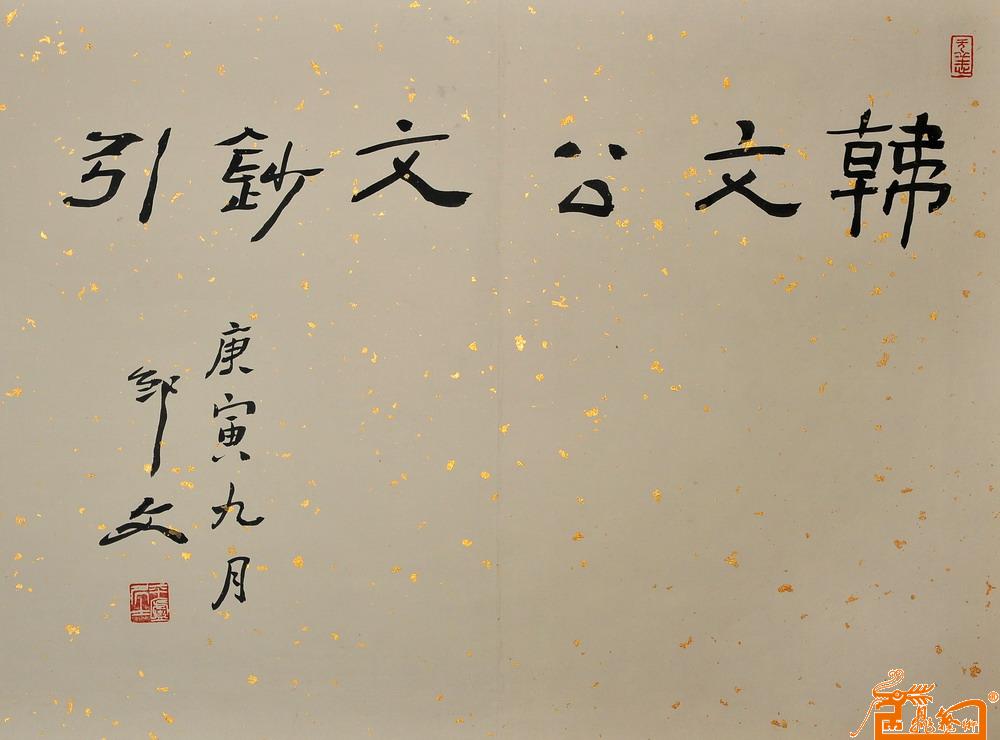 韓文公文鈔引
庚寅九月
邹文